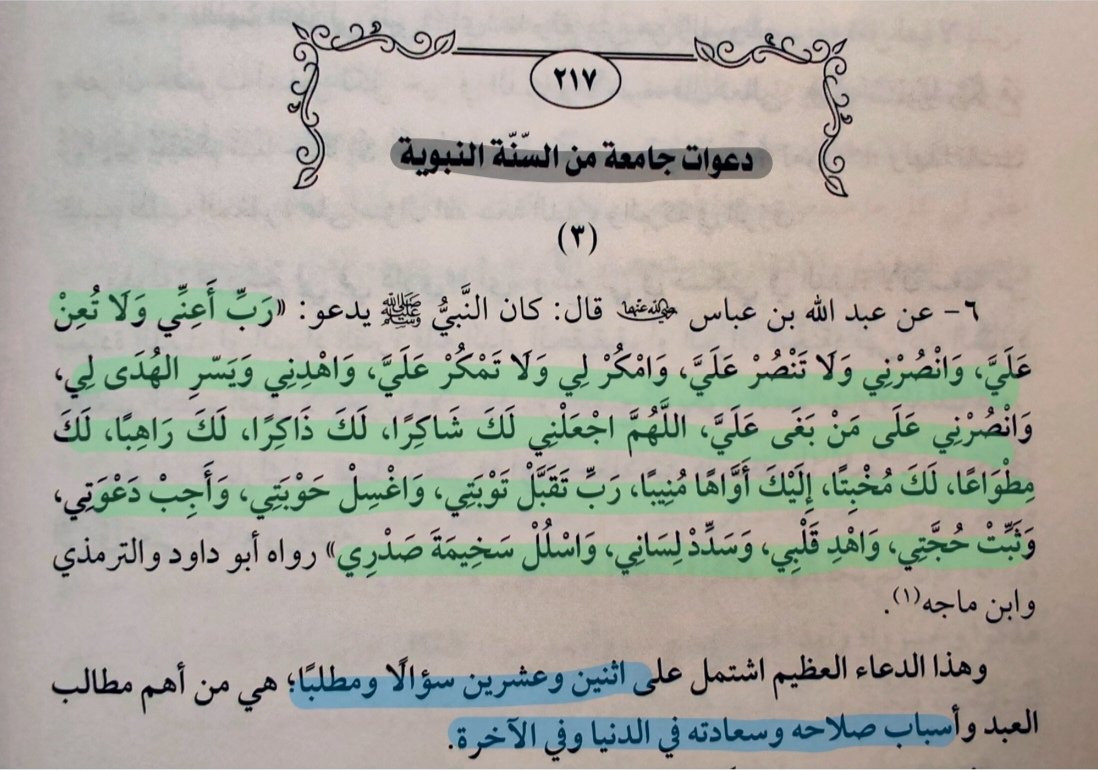 ٢١٧
دعوات جامعة من السّنّة النبوية
(٣)
٦- عن عبد الله بن عباس رضي الله عنهما قال: كان النَّبيُّ ﷺ يدعو: «رَبِّ أَعِنِّي وَلَا تُعِنْ
عَلَيَّ، وَانْصُرْنِي وَلَا تَنْصُرْ عَلَيَّ، وَامْكُرْ لِي وَلَا تَمْكُرْ عَلَيَّ، وَاهْدِنِي وَيَسِّرِ الْهُدَى لِي،
وَانْصُرْنِي عَلَى مَنْ بَغَى عَلَيَّ، اللَّهُمَّ اجْعَلْنِي لَكَ شَاكِرًا، لَكَ ذَاكِرًا، لَكَ رَاهِبًا، لَكَ
مِطْوَاعًا، لَكَ مُخْبِتًا، إِلَيْكَ أَوَّاهًا مُنِيبًا، رَبِّ تَقَبَّلْ تَوْبَتِي، وَاغْسِلْ حَوْبَتِي، وَأَجِبْ دَعْوَتِي،
وَثَبِّتْ حُجَّتِي، وَاهْدِ قَلْبِي، وَسَدِّدْ لِسَانِي، وَاسْلُلْ سَخِيمَةَ صَدْرِي» رواه أبو داود والترمذي
وابن ماجه(١).
وهذا الدعاء العظيم اشتمل على اثنين وعشرين سؤالًا ومطلبًا؛ هي من أهم مطالب
العبد وأسباب صلاحه وسعادته في الدنيا وفي الآخرة.